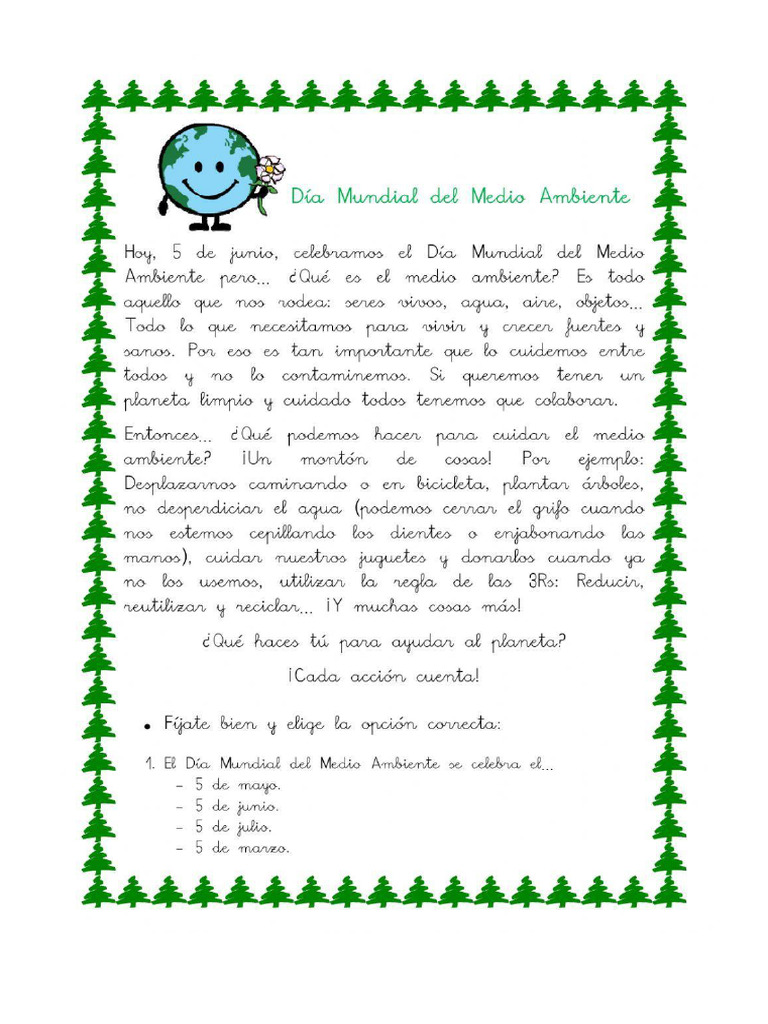 Día Mundial del Medio Ambiente
Hoy, 5 de junio, celebramos el Día Mundial del Medio
Ambiente pero... ¿Qué es el medio ambiente? Es todo
aquello que nos rodea: seres vivos, agua, aire, objetos...
Todo lo que necesitamos para vivir y crecer fuertes y
sanos. Por eso es tan importante que lo cuidemos entre
todos y no lo contaminemos. Si queremos tener un
planeta limpio y cuidado todos tenemos que colaborar.
Entonces... ¿Qué podemos hacer para cuidar el medio
ambiente? ¡Un montón de cosas! Por ejemplo:
Desplazarnos caminando o en bicicleta, plantar árboles,
no desperdiciar el agua (podemos cerrar el grifo cuando
nos estemos cepillando los dientes o enjabonando las
manos), cuidar nuestros juguetes y donarlos cuando ya
no los usemos, utilizar la regla de las 3Rs: Reducir,
reutilizar y reciclar... ¡Y muchas cosas más!
¿Qué haces tú para ayudar al planeta?
¡Cada acción cuenta!
• Fíjate bien y elige la opción correcta:
1. El Día Mundial del Medio Ambiente se celebra el...
- 5 de mayo.
- 5 de junio.
- 5 de julio.
- 5 de marzo.